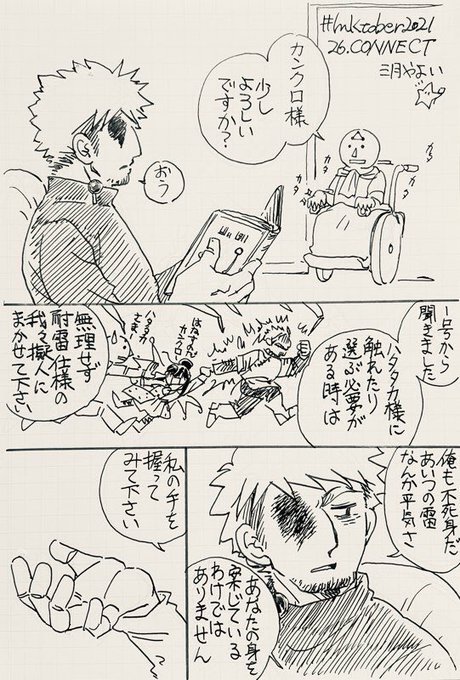 #Inktober2021
26.CONNECT
三月やよい
カンクロ様
少し
よろしい
ですか?
カタ
カタ
カタ
おう
1号から
聞きました
ハタタカ様に
触れたり
運ぶ必要が
ある時は
無理せず
耐雷仕様の
我々擬人に
まかせて下さい
俺も不死身だ
あいつの雷
なんか平気さ
あなたの身を
案じている
わけでは
ありません
私の手を
握って
みて下さい